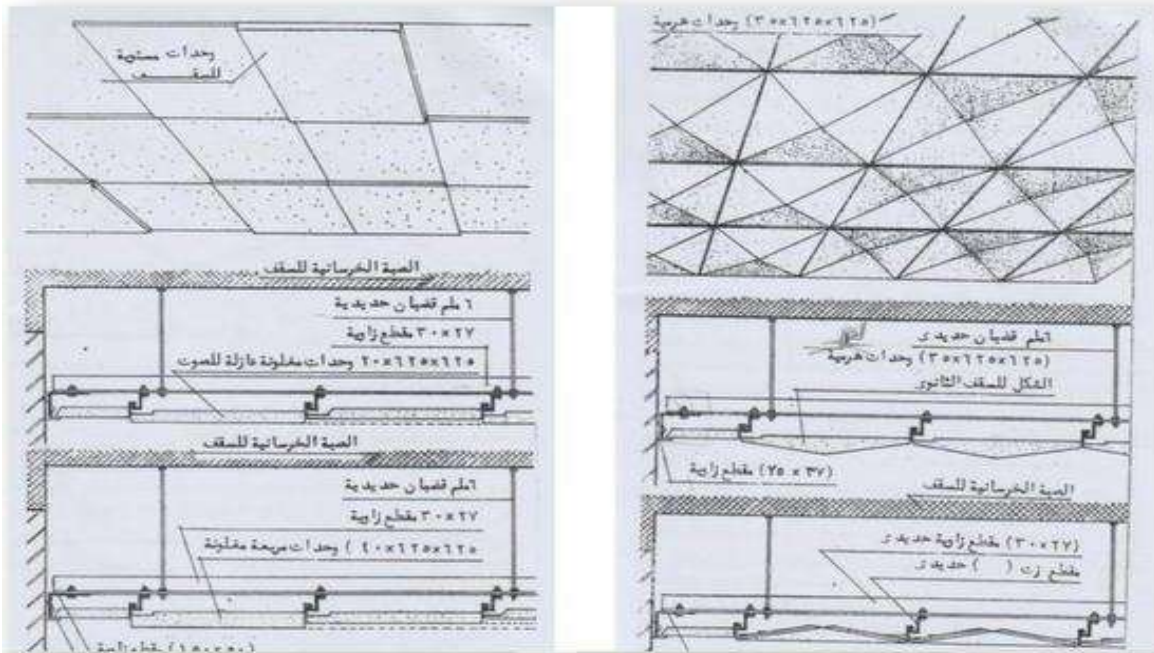 وحدات مستوية
للسقف
الصبة الخرسانية للسقف
٦ ملم قضبان حديدية
٢٧×٣٠ مقطع زاوية
٦٢٥×٦٢٥×٢٠ وحدات مغلونة عازلة للصوت
الصبة الخرسانية للسقف
٦ملم قضبان حديدية
٢٧×٣٠ مقطع زاوية
٦٢٥×٦٢٥×٤٠ ) وحدات مربعة مغلونة
(٥٠×١٥) مقطع زاوية
(٦٢٥×٦٢٥×٣٥) وحدات هرمية
٦ملم قضبان حديدى
(٦٢٥×٦٢٥×٣٥) وحدات هرمية
الشكل للسقف الثانوى
(٣٧ × ٢٥) مقطع زاوية
الصبة الخرسانية للسقف
(٢٧×٣٠) مقطع زاوية حديدى
مقطع زت ( ) حديدى